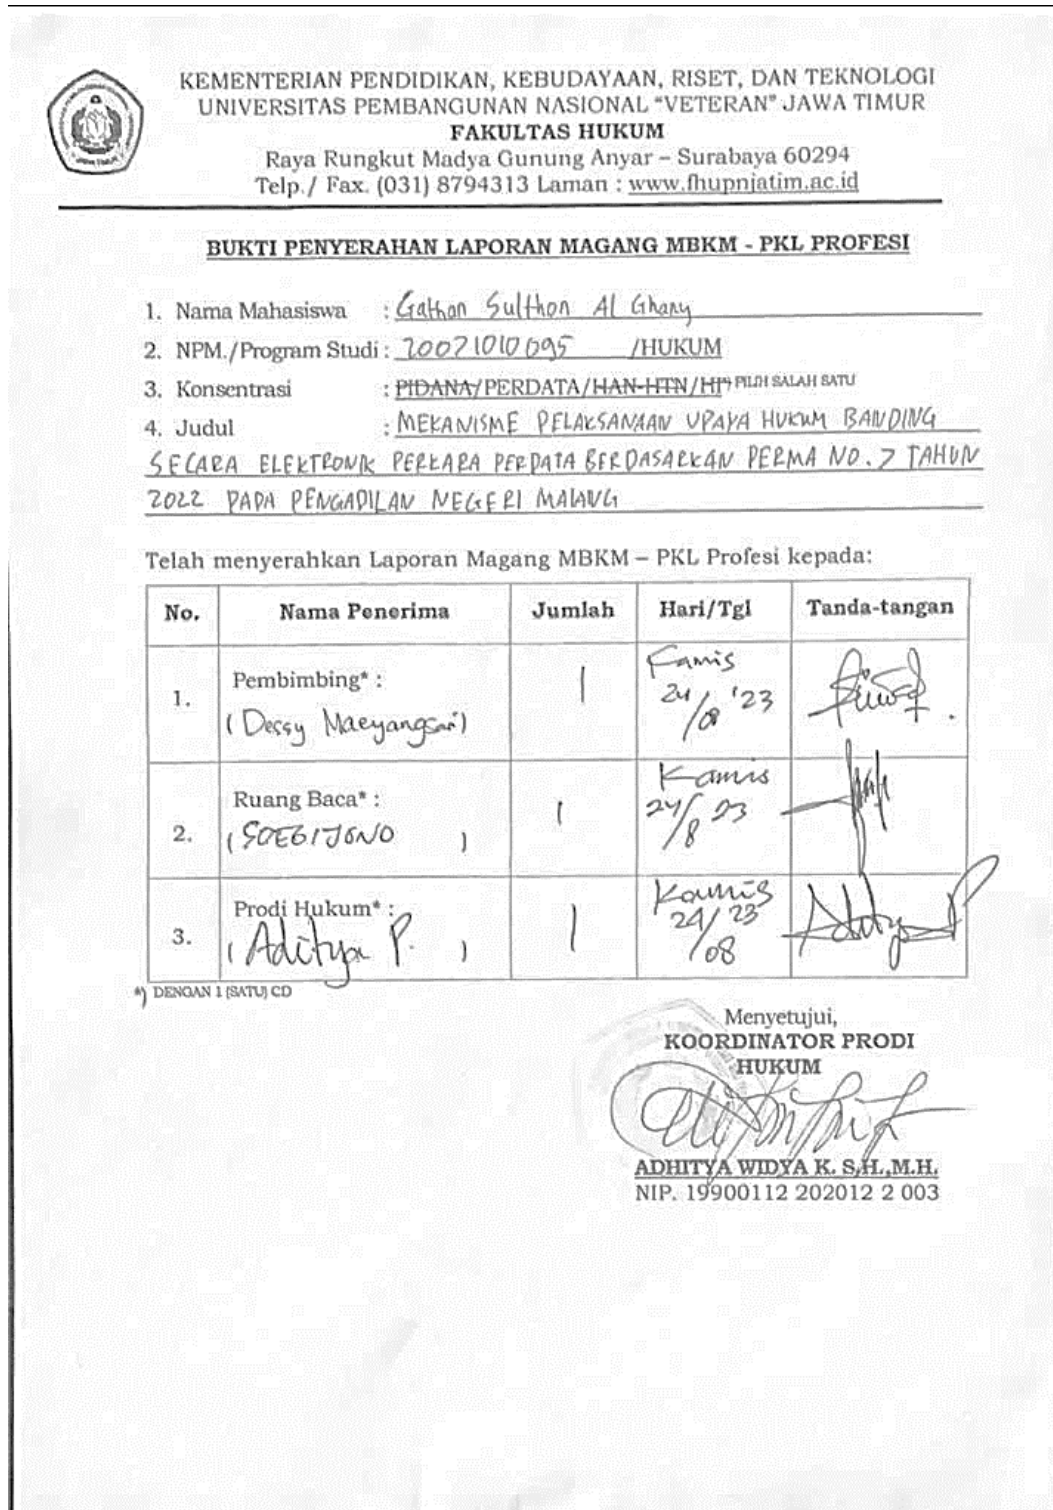 KEMENTERIAN PENDIDIKAN, KEBUDAYAAN, RISET, DAN TEKNOLOGI
UNIVERSITAS PEMBANGUNAN NASIONAL "VETERAN" JAWA TIMUR
FAKULTAS HUKUM
Raya Rungkut Madya Gunung Anyar – Surabaya 60294
Telp./ Fax. (031) 8794313 Laman : www.fhupnjatim.ac.id
BUKTI PENYERAHAN LAPORAN MAGANG MBKM - PKL PROFESI
1. Nama Mahasiswa : Gathan Sulthon Al Ghany
2. NPM./Program Studi : 20071010095 /HUKUM
3. Konsentrasi : PIDANA/PERDATA/HAN-HTN/HI*) PILIH SALAH SATU
4. Judul : MEKANISME PELAKSANAAN UPAYA HUKUM BANDING
SECARA ELEKTRONIK PERKARA PERDATA BERDASARKAN PERMA NO. 7 TAHUN
2022 PADA PENGADILAN NEGERI MALANG
Telah menyerahkan Laporan Magang MBKM – PKL Profesi kepada:
No. Nama Penerima Jumlah Hari/Tgl Tanda-tangan
1. Pembimbing* : (Dessy Maeyangsari) 1 Kamis 24/08 '23
2. Ruang Baca* : (SOEGIJONO) 1 Kamis 24/8 23
3. Prodi Hukum* : (Aditya P.) 1 Kamis 24/08 23
*) DENGAN 1 (SATU) CD
Menyetujui,
KOORDINATOR PRODI
HUKUM
ADHITYA WIDYA K. S.H.,M.H.
NIP. 19900112 202012 2 003